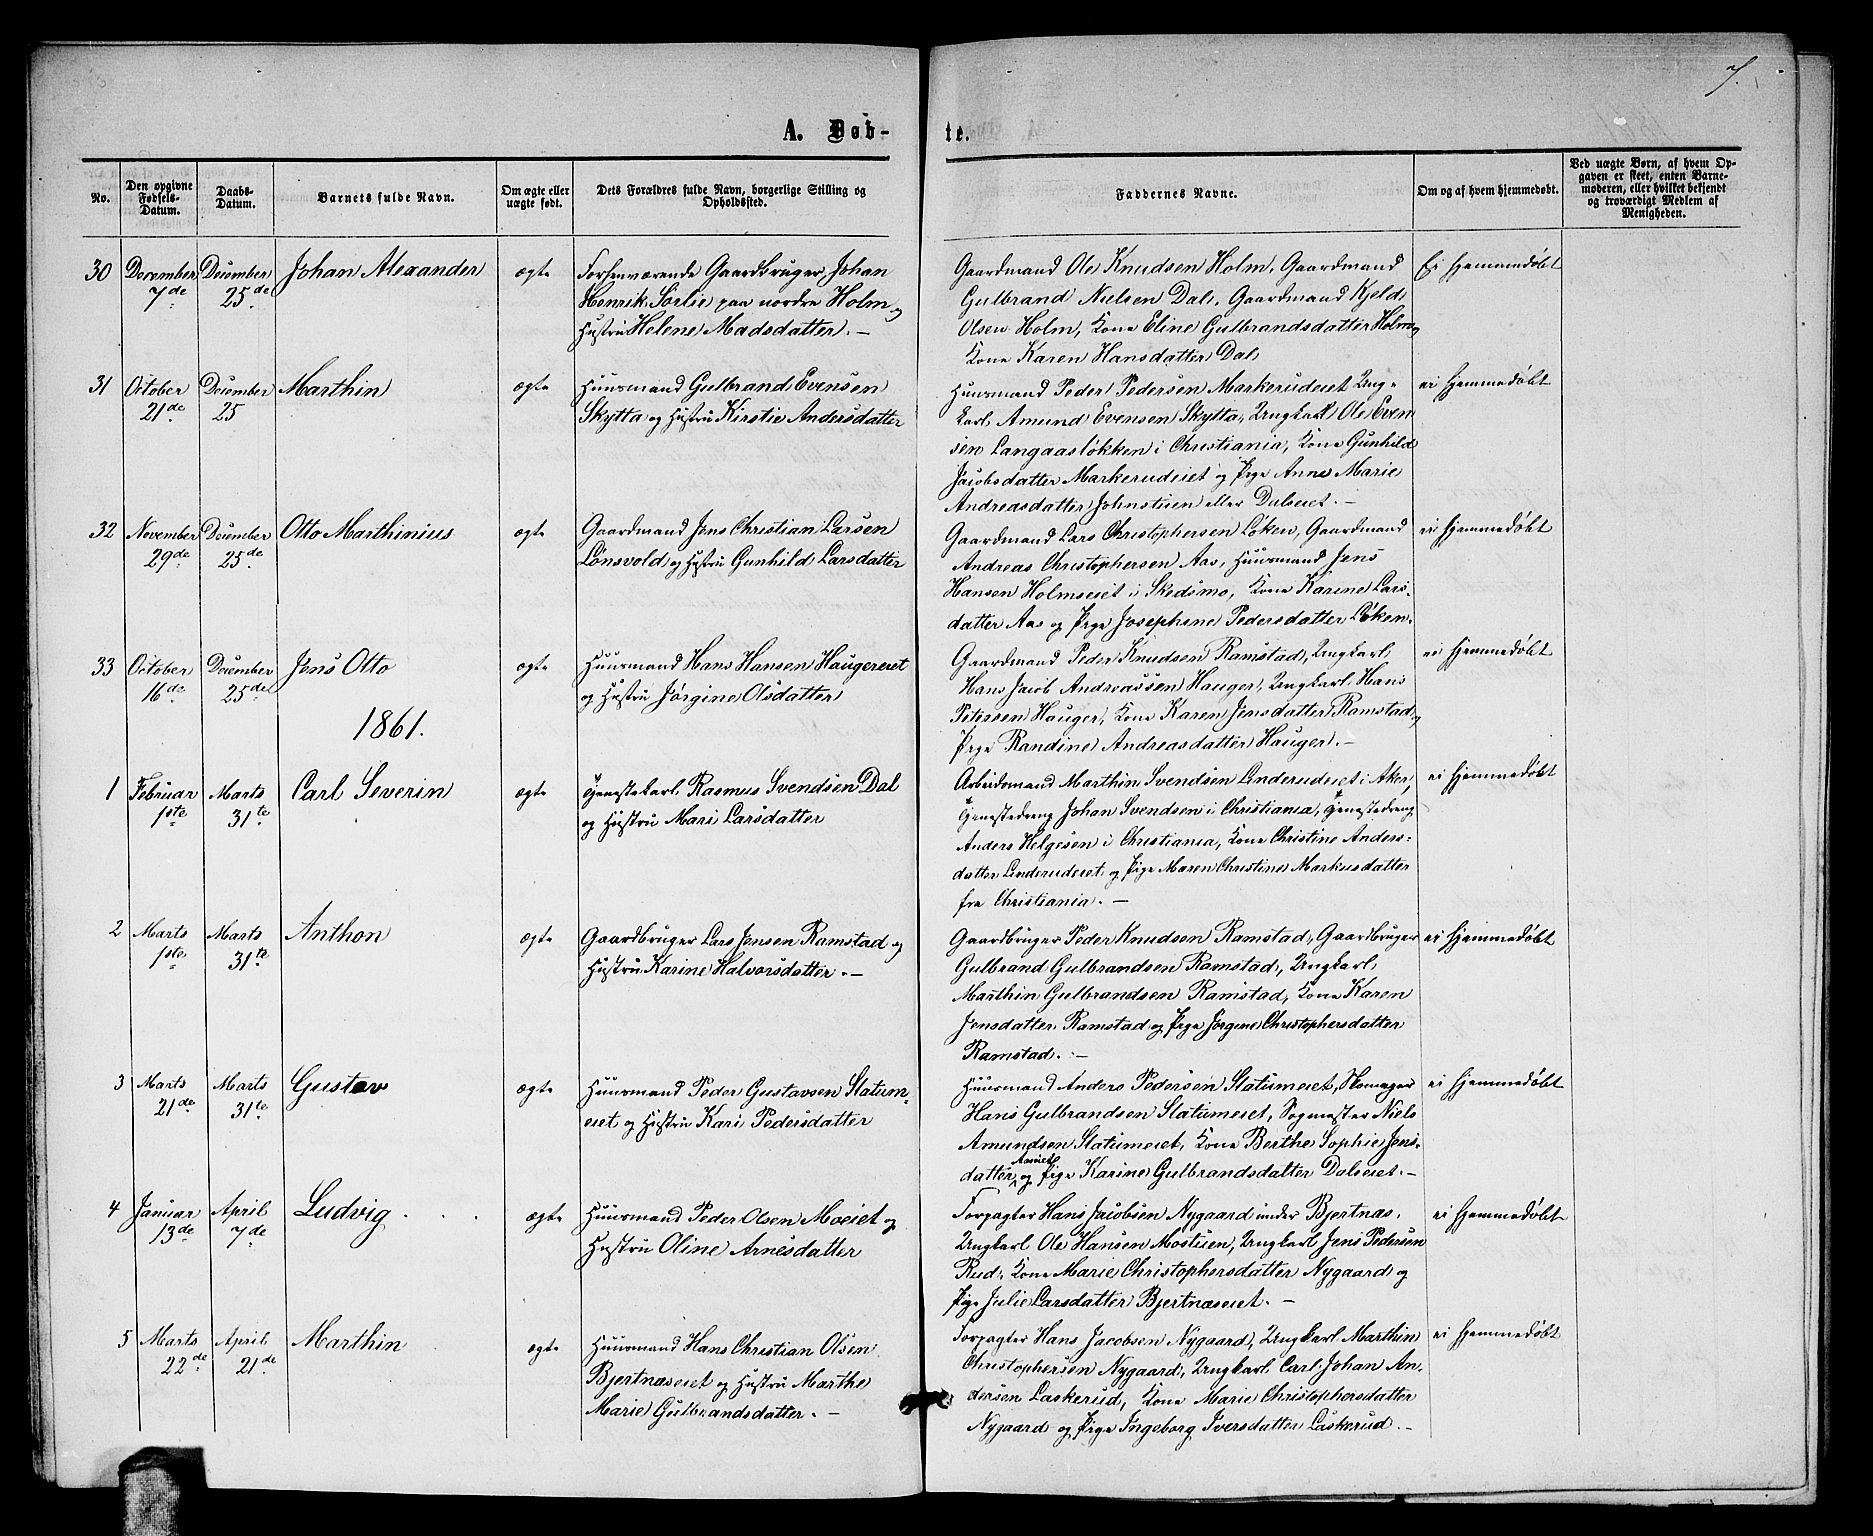 7.
A. Døb-
te.
No.
Den opgivne Fødsels-Datum.
Daabs-Datum.
Barnets fulde Navn.
Om ægte eller uægte født.
Dets Forældres fulde Navn, borgerlige Stilling og Opholdssted.
Faddernes Navne.
Om og af hvem hjemmedøbt.
Ved uægte Børn, af hvem Opgaven er skeet, enten Barnemoderen, eller hvilket bekjendt og troværdigt Medlem af Menigheden.
30
December
7de
December
25de
Johan Alexander
ægte
Forhenværende Gaardbruger Johan
Henrik Sørlie paa nordre Holm og
Hustru Helene Madsdatter. –
Gaardmand Ole Knudsen Holm, Gaardmand
Gulbrand Nielsen Dal, Gaardmand Kjeld
Olsen Holm, Kone Eline Gulbrandsdatter Holm og
Kone Karen Hansdatter Dal
Ei hjemmedøbt
31
October
21de
December
25
Marthin
ægte
Huusmand Gulbrand Evensen
Skytta og Hustru Kirstie Andersdatter
Huusmand Peder Pedersen Markerudeiet Ung-
karl Amund Evensen Skytta, Ungkarl Ole Even
sen Langaasløkken i Christiania, Kone Gunhild
Jacobsdatter Markerudeiet og Pige Anne Marie
Andreasdatter Johnstuen eller Dalseiet. –
ei hjemmedøbt
32
November
29de
December
25de
Otto Marthinius
ægte
Gaardmand Jens Christian Larsen
Lønsvold og Hustru Gunhild Larsdatter
Gaardmand Lars Christophersen Løken, Gaardmand
Andreas Christophersen Aas, Huusmand Jens
Hansen Holmseiet i Skedsmo, Kone Karine Lars-
datter Aas og Pige Josephine Pedersdatter Løken.
ei hjemmedøbt
33
October
16de
December
25de
Jens Otto
ægte
Huusmand Hans Hansen Haugereiet
og Hustru Jørgine Olsdatter
Gaardmand Peder Knudsen Ramstad, Ungkarl
Hans Jacob Andreassen Hauger, Ungkarl Hans
Petersen Hauger, Kone Karen Jensdatter Ramstad og
Pige Randine Andreasdatter Hauger. –
ei hjemmedøbt
1861.
1
Februar
1ste
Marts
31te
Carl Severin
ægte
Tjenestekarl Rasmus Svendsen Dal
og Hustru Mari Larsdatter
Arbeidsmand Marthin Svendsen Linderudeiet i Aker,
Tjenestedreng Johan Svendsen i Christiania, Tjenestedreng
Anders Helgesen i Christiania, Kone Christine Anders-
datter Linderudeiet og Pige Maren Christine Markusdatter
fra Christiania. –
ei hjemmedøbt
2
Marts
1ste
Marts
31te
Anthon
ægte
Gaardbruger Lars Jensen Ramstad og
Hustru Karine Halvorsdatter. –
Gaardbruger Peder Knudsen Ramstad, Gaardbruger
Gulbrand Gulbrandsen Ramstad, Ungkarl
Marthin Gulbrandsen Ramstad, Kone Karen
Jensdatter Ramstad og Pige Jørgine Christophersdatter
Ramstad. –
ei hjemmedøbt
3
Marts
21de
Marts
31te
Gustav
ægte
Huusmand Peder Gustavsen Slatum-
eiet og Hustru Kari Pedersdatter
Huusmand Anders Pedersen Slatumeiet, Skomager
Hans Gulbrandsen Slatumeiet, Sogmester Niels
Amundsen Slatumeiet, Kone Berthe Sophie Jens-
datter Aaseiet og Pige Karine Gulbrandsdatter Dalseiet. –
ei hjemmedøbt
4
Januar
13de
April
7de
Ludvig
ægte
Huusmand Peder Olsen Moeiet og
Hustru Oline Arnesdatter
Forpagter Hans Jacobsen Nygaard under Bjertnæs,
Ungkarl Ole Hansen Mostuen, Ungkarl Jens Pedersen
Rud, Kone Marie Christophersdatter Nygaard og
Pige Julie Larsdatter Bjertnæseiet. –
ei hjemmedøbt
5
Marts
22de
April
21de
Marthin
ægte
Huusmand Hans Christian Olsen
Bjertnæseiet og Hustru Marthe
Marie Gulbrandsdatter. –
Forpagter Hans Jacobsen Nygaard, Ungkarl Marthin
Christophersen Nygaard, Ungkarl Carl Johan An-
dersen Laskerud, Kone Marie Christophersdatter
Nygaard og Pige Ingeborg Iversdatter Laskerud. –
ei hjemmedøbt